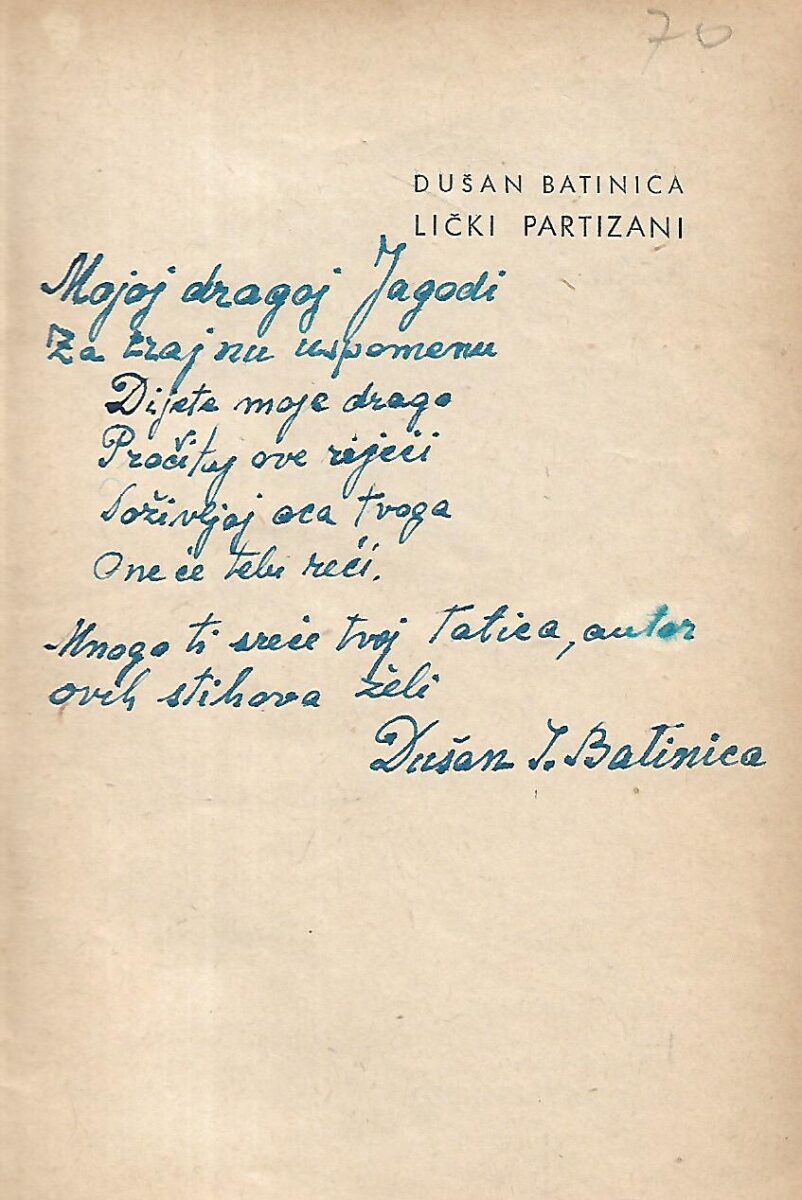 70
DUŠAN BATINICA
LIČKI PARTIZANI
Mojoj dragoj Jagodi
Za trajnu uspomenu
Dijete moje drago
Pročitaj ove riječi
Doživljaj oca tvoga
One će tebi reći.
Mnogo ti sreće tvoj Tatica, autor
ovih stihova želi
Dušan I. Batinica